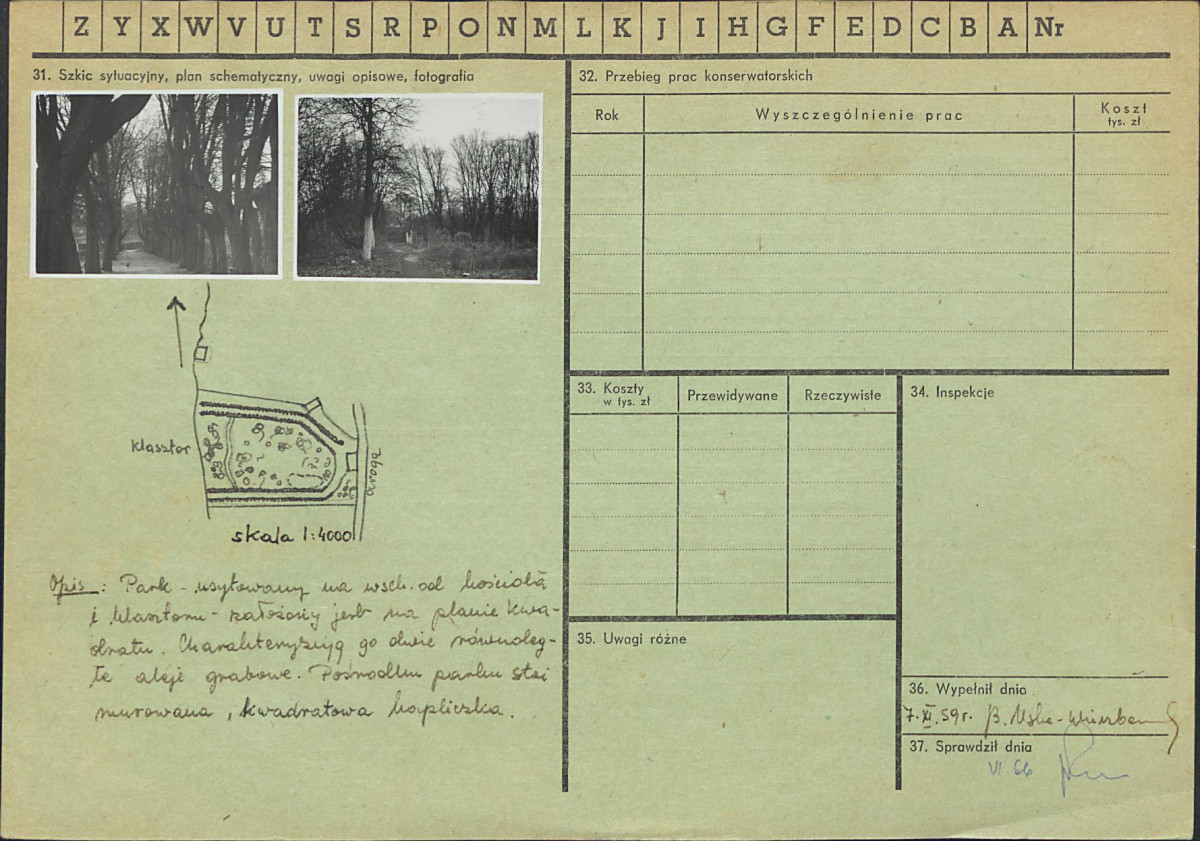 Z Y X W V U T S R P O N M L K J I H G F E D C B A Nr
31. Szkic sytuacyjny, plan schematyczny, uwagi opisowe, fotografia
klasztor
obora
skala 1:4000
Opis: Park - usytowany na wsch. od kościoła
i klasztoru - założony jest na planie kwa-
dratu. Charakteryzują go dwie równoleg-
łe aleje grabowe. Pośrodku parku stoi
murowana, kwadratowa kapliczka.
32. Przebieg prac konserwatorskich
Rok
Wyszczególnienie prac
Koszt
tys. zł
33. Koszty
w tys. zł
Przewidywane
Rzeczywiste
34. Inspekcje
35. Uwagi różne
36. Wypełnił dnia
7.XI.59r. B.
37. Sprawdził dnia
VI. 66